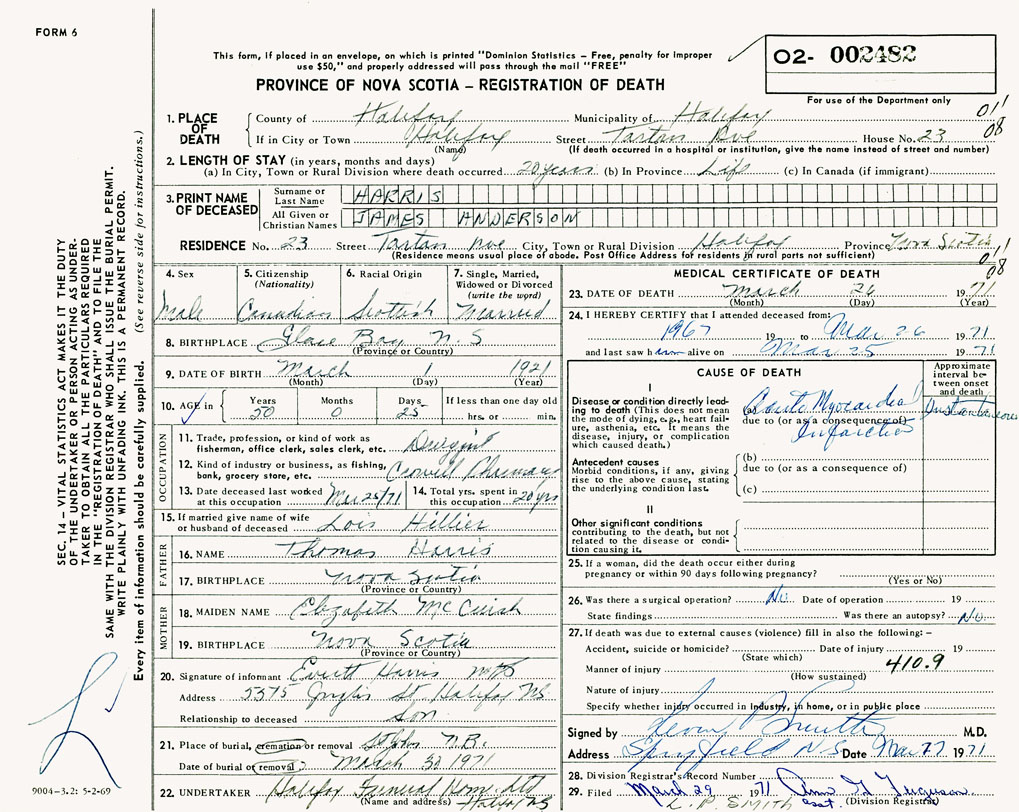 FORM 6
This form, if placed in an envelope, on which is printed "Dominion Statistics – Free, penalty for improper
use $50," and properly addressed will pass through the mail "FREE"
02- 002482
For use of the Department only
PROVINCE OF NOVA SCOTIA – REGISTRATION OF DEATH
011
08
1. PLACE OF DEATH County of Halifax Municipality of Halifax
If in City or Town Halifax Street Tartan Ave House No. 23
(Name) (If death occurred in a hospital or institution, give the name instead of street and number)
2. LENGTH OF STAY (in years, months and days)
(a) In City, Town or Rural Division where death occurred 20 years (b) In Province Life (c) In Canada (if immigrant)
3. PRINT NAME OF DECEASED Surname or Last Name HARRIS
All Given or Christian Names JAMES ANDERSON
RESIDENCE No. 23 Street Tartan Ave City, Town or Rural Division Halifax Province Nova Scotia
(Residence means usual place of abode. Post Office Address for residents in rural parts not sufficient)
4. Sex Male
5. Citizenship (Nationality) Canadian
6. Racial Origin Scottish
7. Single, Married, Widowed or Divorced (write the word) Married
8. BIRTHPLACE Glace Bay N.S
(Province or Country)
9. DATE OF BIRTH March 1 1921
(Month) (Day) (Year)
10. AGE in Years 50 Months 0 Days 25 If less than one day hrs. or min.
OCCUPATION
11. Trade, profession, or kind of work as fisherman, office clerk, sales clerk, etc.
12. Kind of industry or business, as fishing, bank, grocery store, etc.
13. Date deceased last worked at this occupation Mar 25/71
14. Total yrs. spent in this occupation 20 yrs
15. If married give name of wife or husband of deceased Lois Hillier
FATHER
16. NAME Thomas Harris
17. BIRTHPLACE Nova Scotia
(Province or Country)
MOTHER
18. MAIDEN NAME Elizabeth
19. BIRTHPLACE Nova Scotia
(Province or Country)
20. Signature of informant Everett Harris
Address 5375 St. Halifax NS
Relationship to deceased Son
21. Place of burial, cremation or removal St John N.B.
Date of burial or removal March 30 1971
22. UNDERTAKER Halifax Funeral Home Ltd
(Name and address) Halifax NS
MEDICAL CERTIFICATE OF DEATH
011
08
23. DATE OF DEATH March 26 1971
(Month) (Day) (Year)
24. I HEREBY CERTIFY that I attended deceased from:
1967 19 to Mar 26 1971
and last saw him alive on Mar 25 1971
CAUSE OF DEATH
Approximate interval between onset and death
I
Disease or condition directly leading to death (This does not mean the mode of dying, e.g., heart failure, asthenia, etc. It means the disease, injury, or complication which caused death.)
(a) Acute Myocardial Infarction Instantaneous
due to (or as a consequence of)
Antecedent causes
Morbid conditions, if any, giving rise to the above cause, stating the underlying condition last.
(b)
due to (or as a consequence of)
(c)
II
Other significant conditions contributing to the death, but not related to the disease or condition causing it.
25. If a woman, did the death occur either during pregnancy or within 90 days following pregnancy?
(Yes or No)
26. Was there a surgical operation? No Date of operation 19
State findings Was there an autopsy? No
27. If death was due to external causes (violence) fill in also the following: –
Accident, suicide or homicide? Date of injury 19
(State which)
Manner of injury 410.9
(How sustained)
Nature of injury
Specify whether injury occurred in Industry, in home, or in public place
Signed by Smith M.D.
Address Springfield N S Date Mar 27 1971
28. Division Registrar's Record Number
29. Filed March 29 1971 Ann G Ferguson
L. P. SMITH asst. (Division Registrar)
SEC. 14 – VITAL STATISTICS ACT MAKES IT THE DUTY
OF THE UNDERTAKER OR PERSON ACTING AS UNDER-
TAKER TO OBTAIN ALL THE PARTICULARS REQUIRED
IN THE "REGISTRATION OF DEATH" AND TO FILE THE
SAME WITH THE DIVISION REGISTRAR WHO SHALL ISSUE THE BURIAL PERMIT.
WRITE PLAINLY WITH UNFADING INK. THIS IS A PERMANENT RECORD.
Every item of information should be carefully supplied. (See reverse side for instructions.)
9004-3.2: 5-2-69